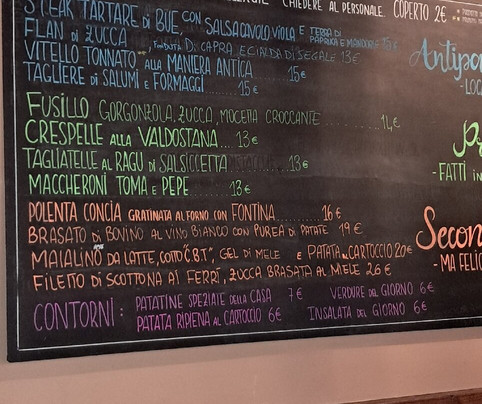 CHIEDERE AL PERSONALE. COPERTO 2€
STEAK TARTARE DI BUE, CON SALSA CAVOLO VIOLA E TERRA DI PAPRIKA E MANDORLE 15€
FLAN DI ZUCCA, FONDUTA DI CAPRA E CIALDA DI SEGALE 13€
VITELLO TONNATO ALLA MANIERA ANTICA 15€
TAGLIERE DI SALUMI E FORMAGGI 15€
FUSILLO GORGONZOLA, ZUCCA, MOCETTA CROCCANTE 14€
CRESPELLE ALLA VALDOSTANA 13€
TAGLIATELLE AL RAGU DI SALSICCETTA 13€
MACCHERONI TOMA E PEPE 13€
POLENTA CONCIA GRATINATA AL FORNO CON FONTINA 16€
BRASATO DI BOVINO AL VINO BIANCO CON PUREA DI PATATE 19€
MAIALINO DA LATTE, COTTO "C.B.T", GEL DI MELE E PATATA AL CARTOCCIO 20€
FILETTO DI SCOTTONA AI FERRI, ZUCCA BRASATA AL MIELE 26€
CONTORNI: PATATINE SPEZIATE DELLA CASA 7€ VERDURE DEL GIORNO 6€
PATATA RIPIENA AL CARTOCCIO 6€ INSALATA DEL GIORNO 6€
Antipa
-LOC
-FATTI in
Secon
-MA FELIC